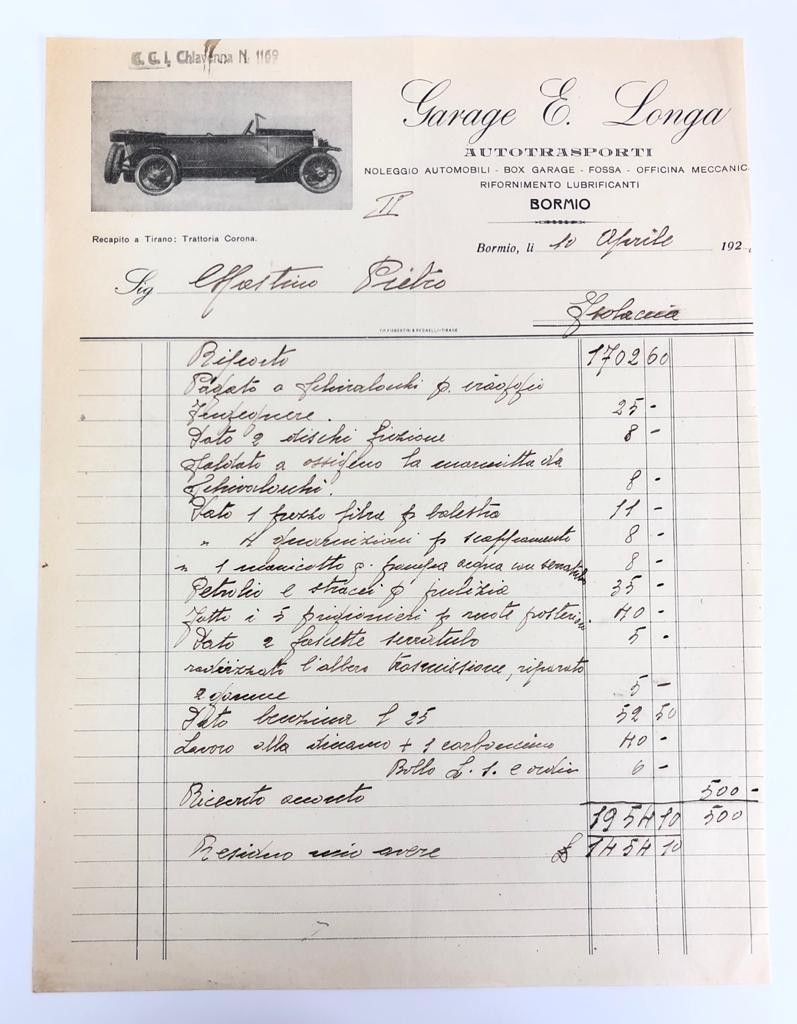 C. C. I. Chiavenna N. 1169
Garage E. Longa
AUTOTRASPORTI
NOLEGGIO AUTOMOBILI - BOX GARAGE - FOSSA - OFFICINA MECCANIC
RIFORNIMENTO LUBRIFICANTI
BORMIO
II
Recapito a Tirano: Trattoria Corona.
Bormio, li 10 Aprile 192
Sig Pietro
Isolaccia
TIP. FIORENTINI & REDAELLI - TIRANO
Riporto 1702 60
Pagato a p.
25 -
Dato 2 dischi frizione 8 -
Saldato a ossigeno la marmitta da
8 -
Dato 1 pezzo fibra p balestra 11 -
" 4 guarnizioni p scappamento 8 -
" 1 manicotto p. pompa acqua con 8 -
Petrolio e stracci p pulizia 35 -
Fatti i 5 prigionieri p ruote posteriori 40 -
Dato 2 fascette serratubo 5 -
l'albero trasmissione, riparato
2 gomme 5 -
Dato benzina l 25 52 50
Lavoro alla dinamo + 1 carboncino 40 -
Bollo L. 1. e 6 -
Ricevuto acconto 500 -
1954 10 500
Residuo mio avere £ 1454 10